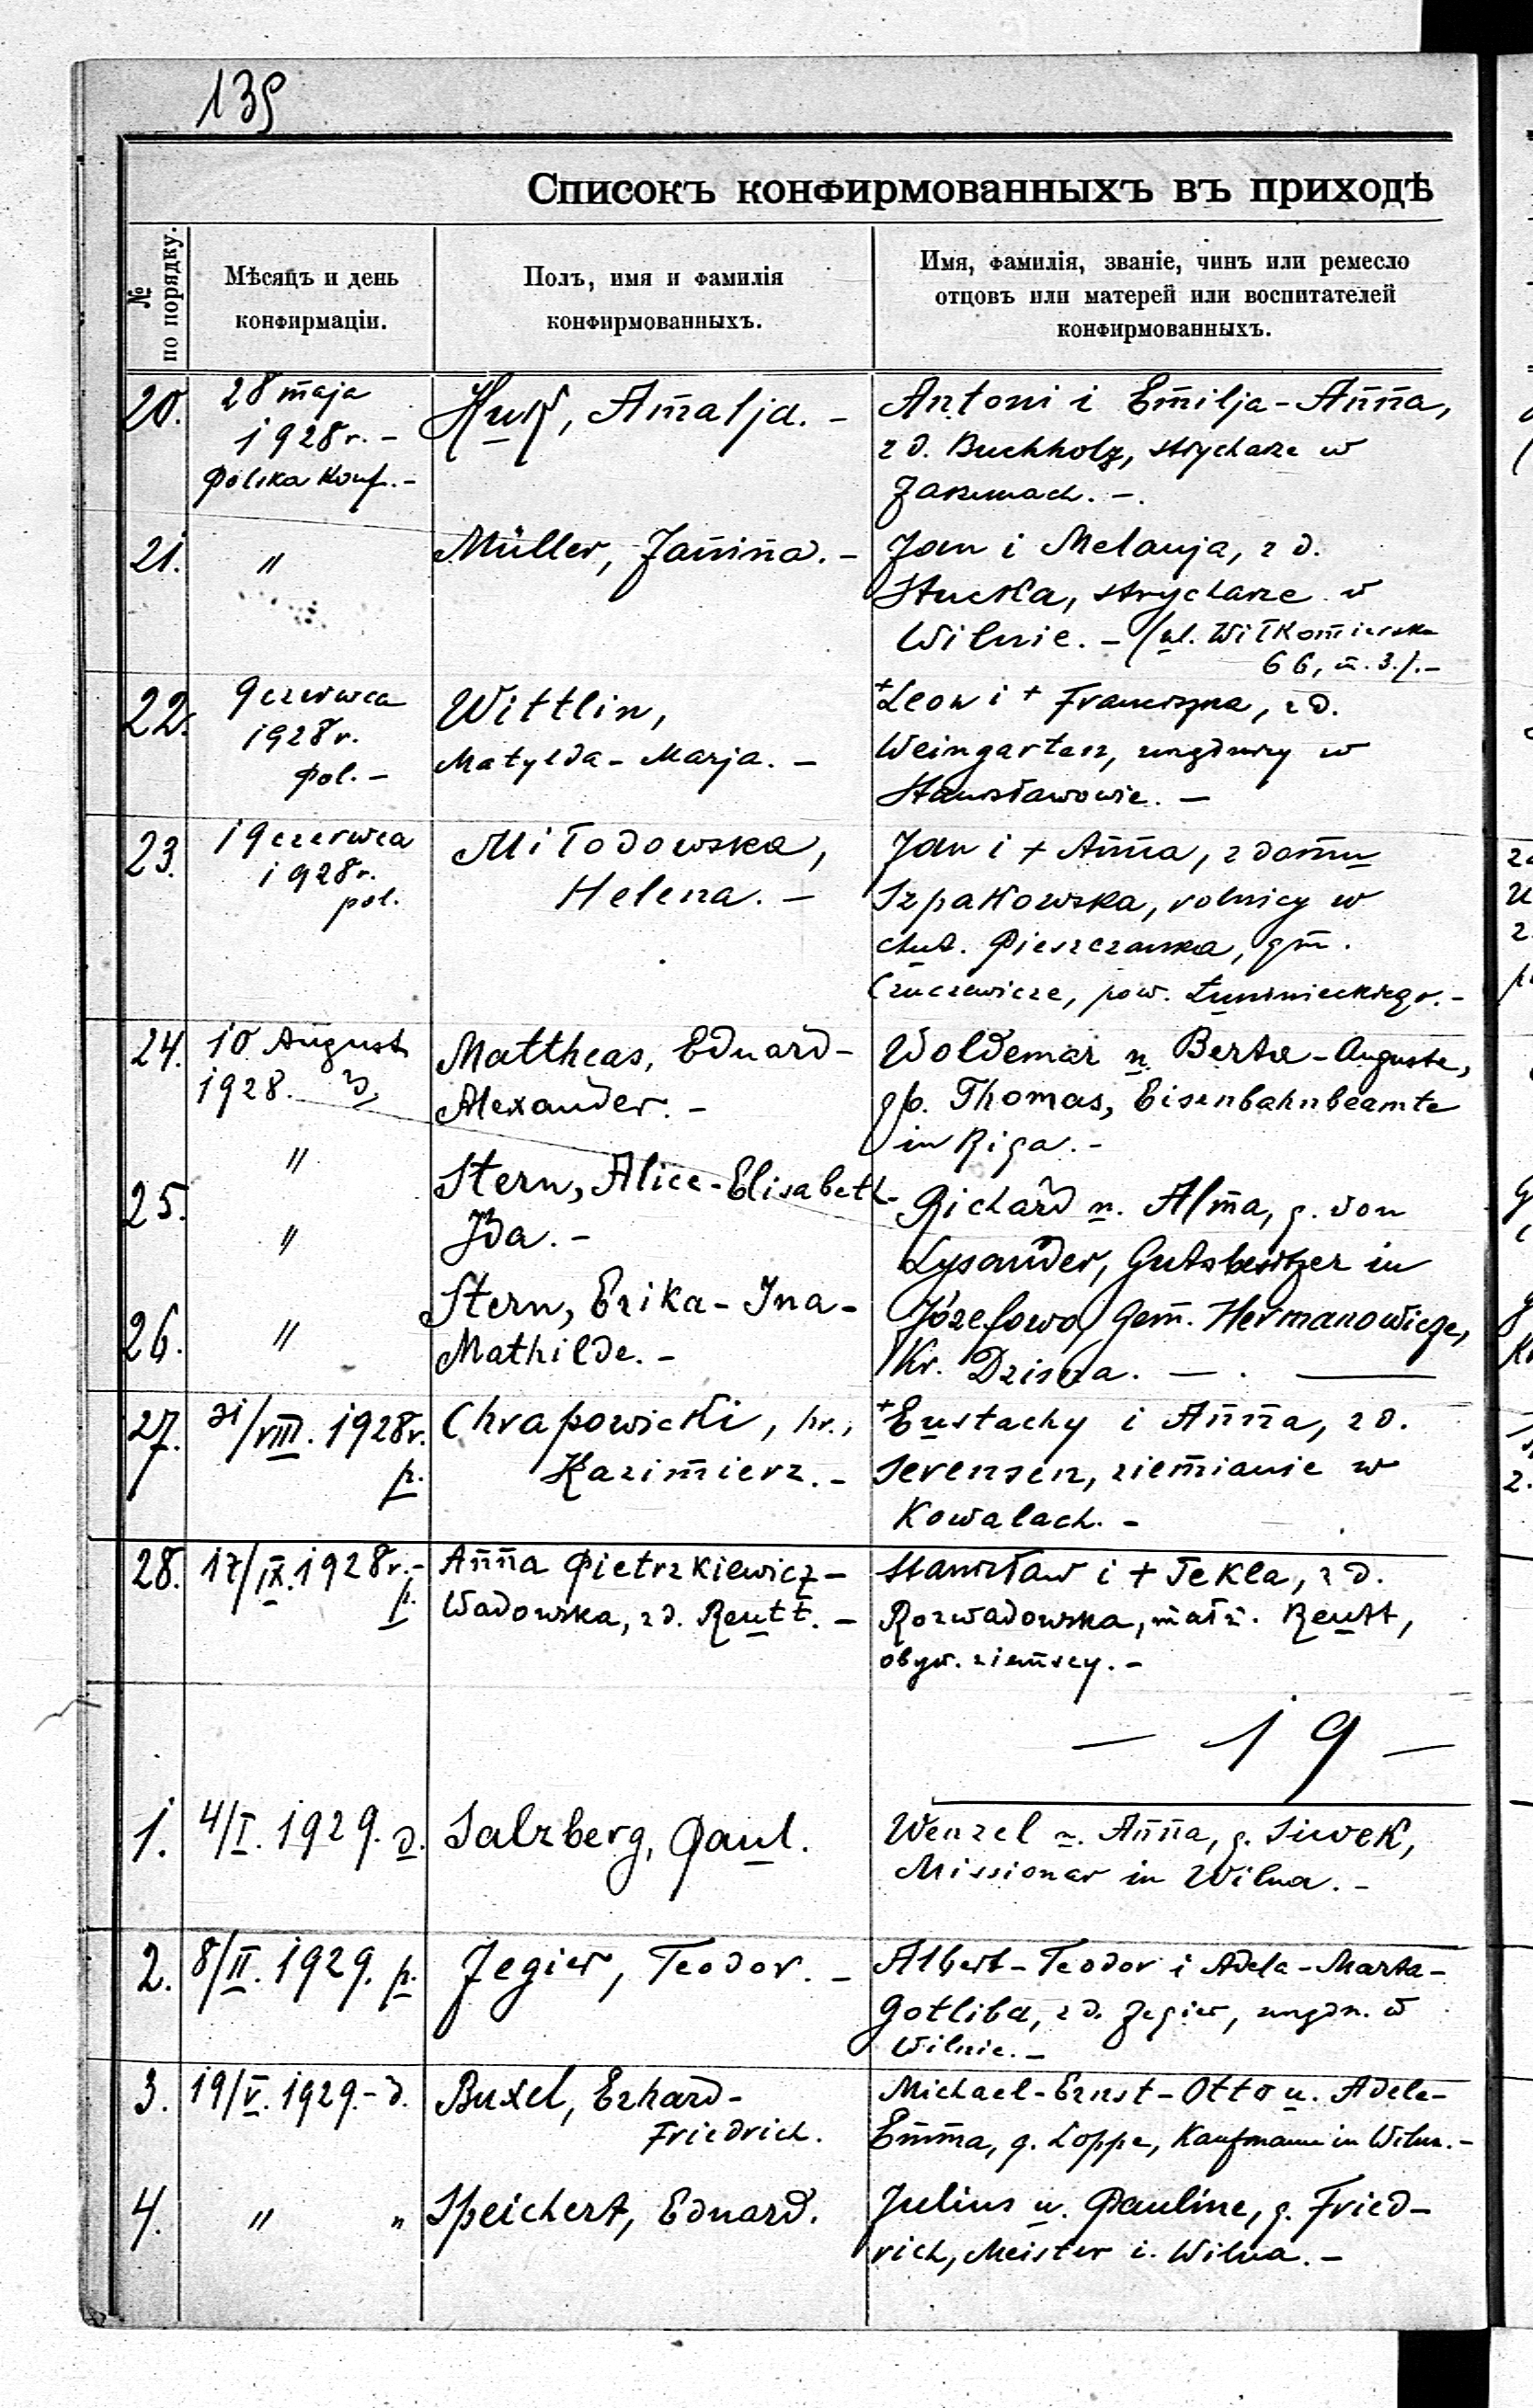 139
Списокъ конфирмованныхъ въ приходѣ
№ по порядку.
Мѣсяцъ и день
конфирмаціи.
Полъ, имя и фамилія
конфирмованныхъ.
Имя, фамилія, званіе, чинъ или ремесло
отцовъ или матерей или воспитателей
конфирмованныхъ.
20.
28 maja
1928 r. -
Polska Konf. -
Amalja. -
Antoni i Emilja-Anna,
z d. Buchholz, strycharze w
21.
"
Müller, Janina. -
Jan i Melanja, z d.
Stucka, strycharze w
Wilnie. - (ul. Wiłkomierska
66, m. 3.). -
22.
9 czerwca
1928 r.
pol. -
Wittlin,
Matylda-Marja. -
+ Leon i + Franciszka, z d.
Weingarten, urzędnicy w
Stanisławowie. -
23.
19 czerwca
1928 r.
pol.
Miłodowska,
Helena. -
Jan i + Anna, z domu
Szpakowska, rolnicy w
chut. Pieszczanka, gm.
Czuczewicze, pow. Łuninieckiego. -
24.
10 August
1928. d.
Mattheas, Eduard-
Alexander. -
Woldemar u. Berta-Auguste,
gb. Thomas, Eisenbahnbeamte
in Riga. -
25.
"
"
Stern, Alice-Elisabeth-
Ida. -
Richard u. Alma, g. von
Lysander, Gutsbesitzer in
26.
"
Stern, Erika-Ina-
Mathilde. -
Józefowo, Gem. Hermanowicze,
Kr. Dzisna. - . -
27.
31/VIII. 1928 r.
p.
Chrapowicki, hr.,
Kazimierz. -
+ Eustachy i Anna, z d.
Serensen, ziemianie w
Kowalach. -
28.
17/IX. 1928 r. -
p.
Anna Pietrzkiewicz-
Wadowska, z d. Reutt. -
Stanisław i + Tekla, z d.
Rozwadowska, małż. Reutt,
obyw. ziemscy. -
- 19 -
1.
4/I. 1929. d.
Salzberg, Paul.
Wenzel u. Anna, g. Siwek,
Missionar in Wilna. -
2.
8/II. 1929. p.
Jegier, Teodor. -
Albert-Teodor i Adela-Marta-
Gotliba, z d. Jegier, urzędn. w
Wilnie. -
3.
19/V. 1929. - d.
Buxel, Erhard-
Friedrich.
Michael-Ernst-Otto u. Adele-
Emma, g. Loppe, Kaufmann in Wilna. -
4.
" "
Speichert, Eduard.
Julius u. Pauline, g. Fried-
rich, Meister i. Wilna. -